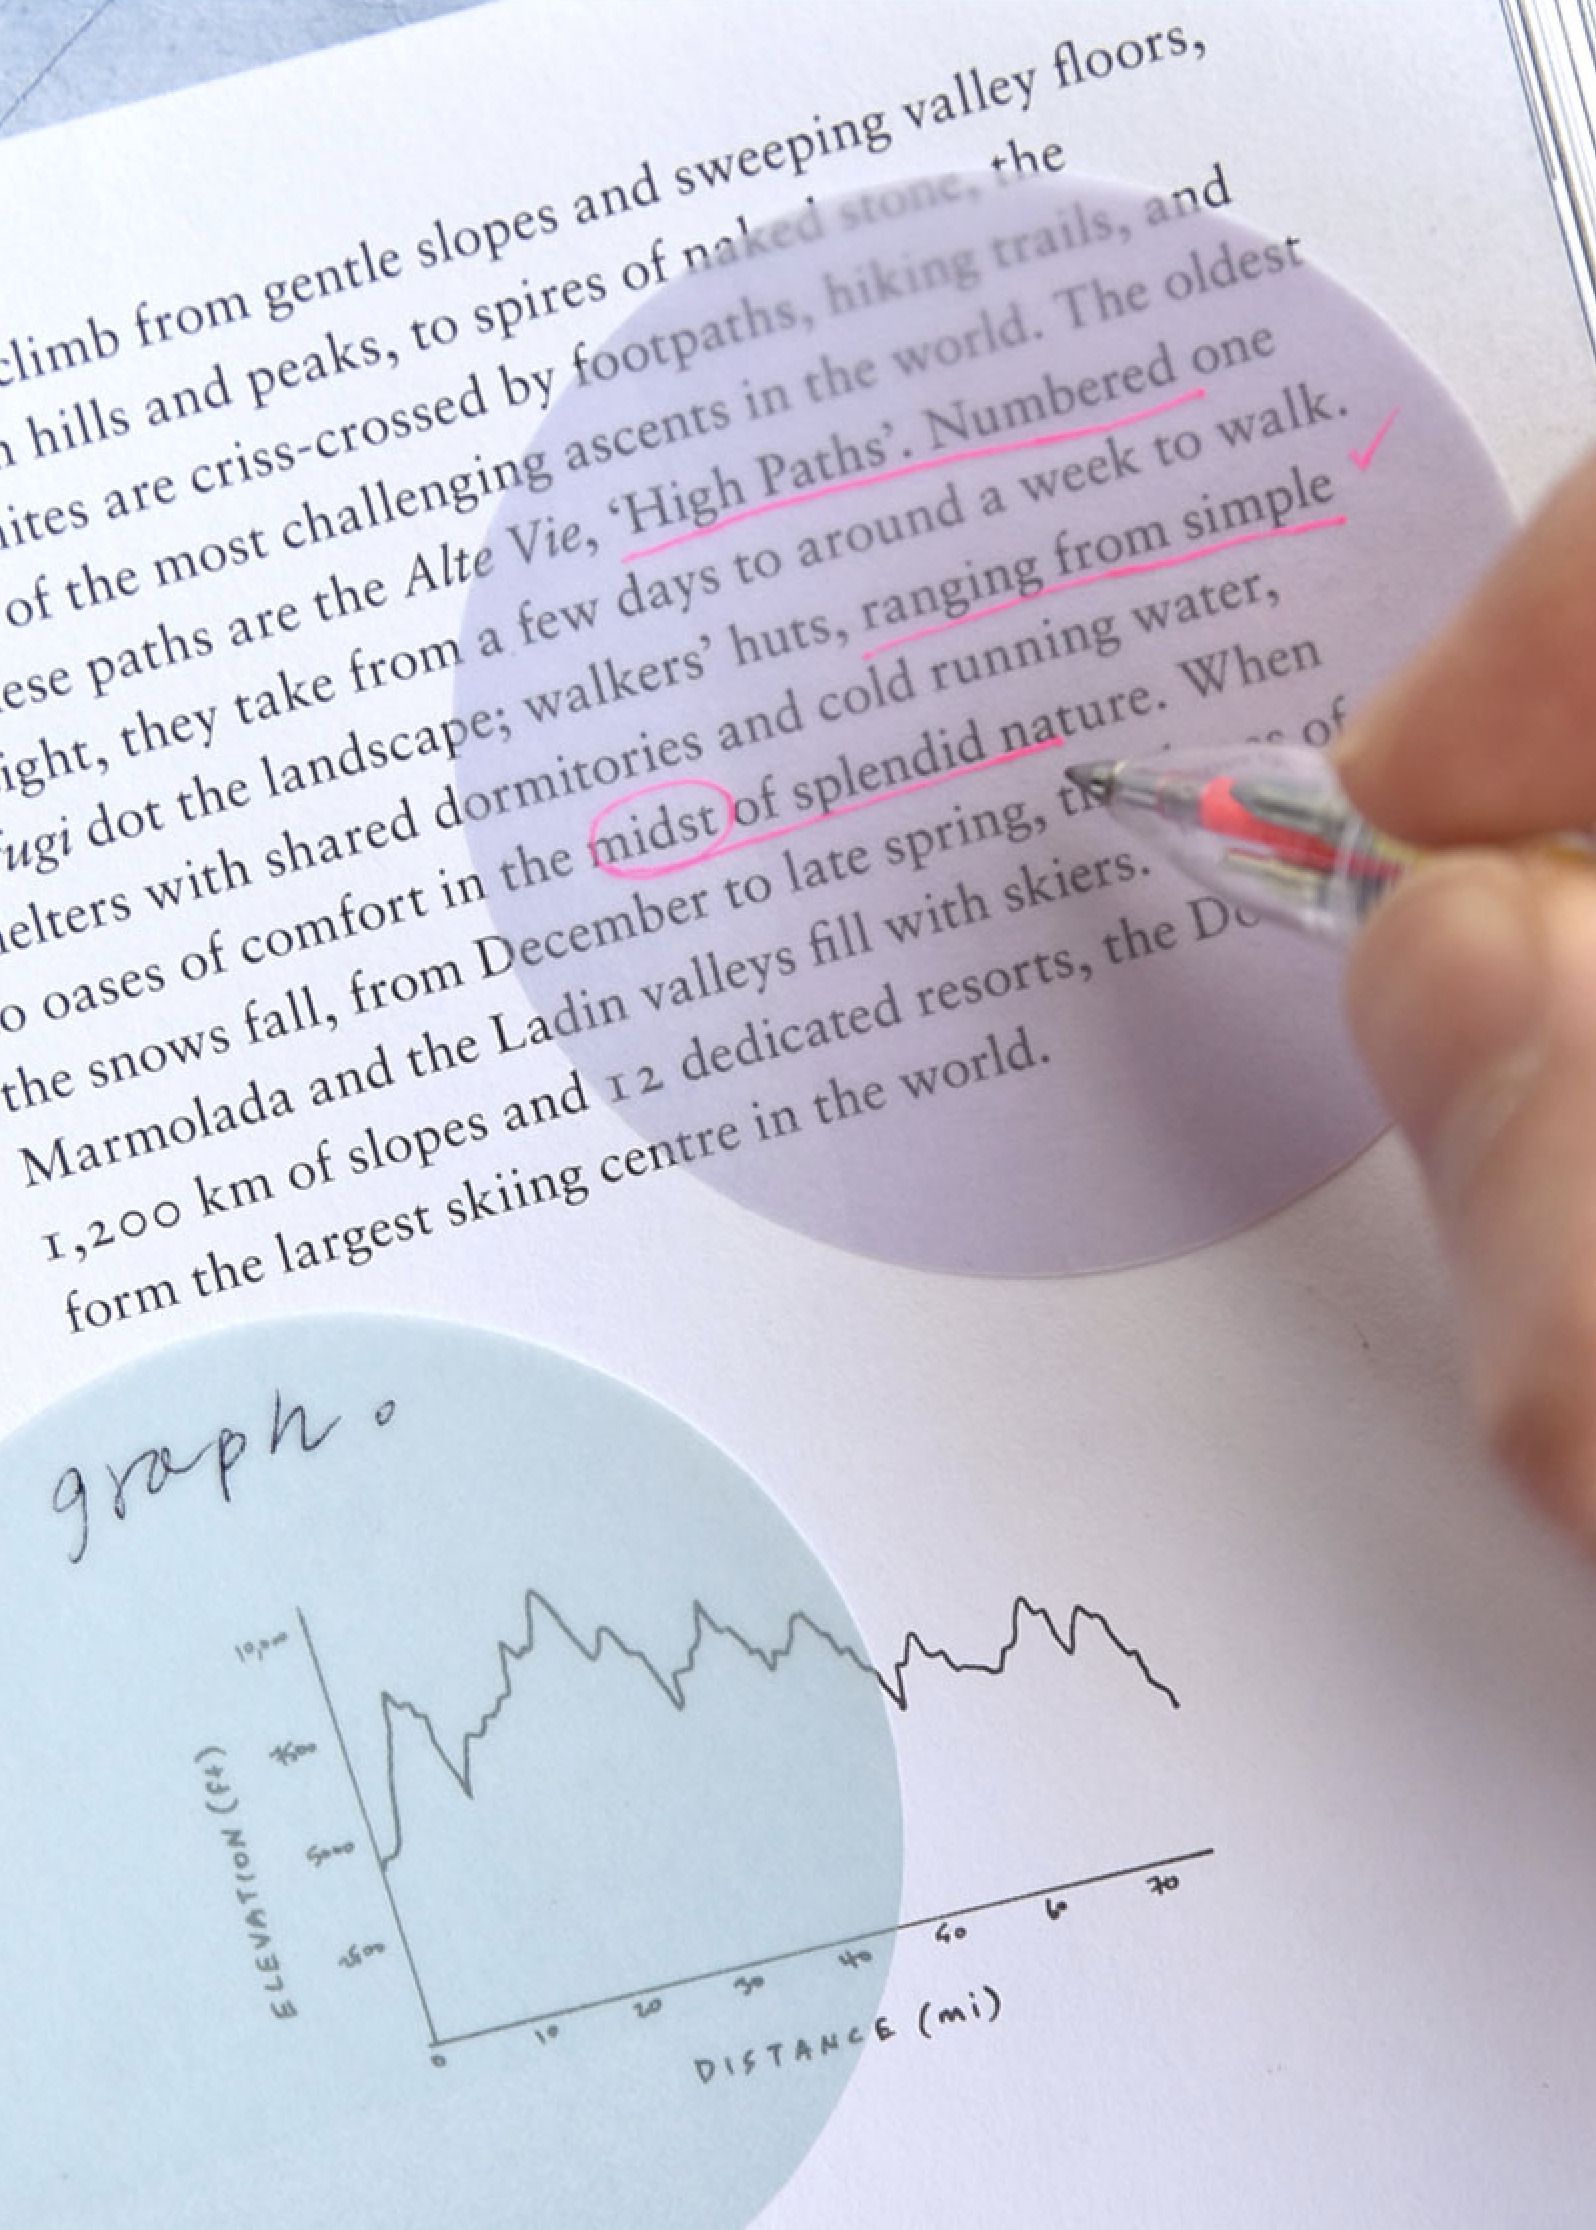 climb from gentle slopes and sweeping valley floors,
hills and peaks, to spires of naked stone, the
are criss-crossed by footpaths, hiking trails, and
of the most challenging ascents in the world. The oldest
paths are the Alte Vie, ‘High Paths’. Numbered one
they take from a few days to around a week to walk.
dot the landscape; walkers’ huts, ranging from simple
with shared dormitories and cold running water,
oases of comfort in the midst of splendid nature. When
the snows fall, from December to late spring, of
Marmolada and the Ladin valleys fill with skiers.
1,200 km of slopes and 12 dedicated resorts, the
form the largest skiing centre in the world.
graph.
ELEVATION (ft)
10,000
7500
5000
2500
0 10 20 30 40 50 60 70
DISTANCE (mi)